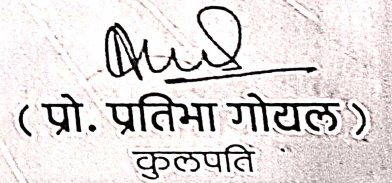 ( प्रो. प्रतिभा गोयल )
कुलपति